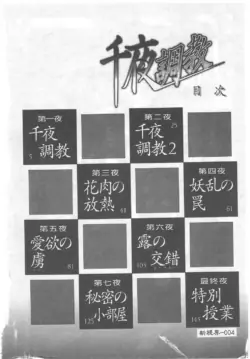 千夜調教
目次
第一夜
千夜
調教
5
第二夜
千夜
調教2
25
第三夜
花肉の
放熱
43
第四夜
妖乱の
罠
61
第五夜
愛欲の
虜
81
第六夜
露の
交錯
105
第七夜
秘密の
小部屋
125
最終夜
特別
授業
145
新視界-004